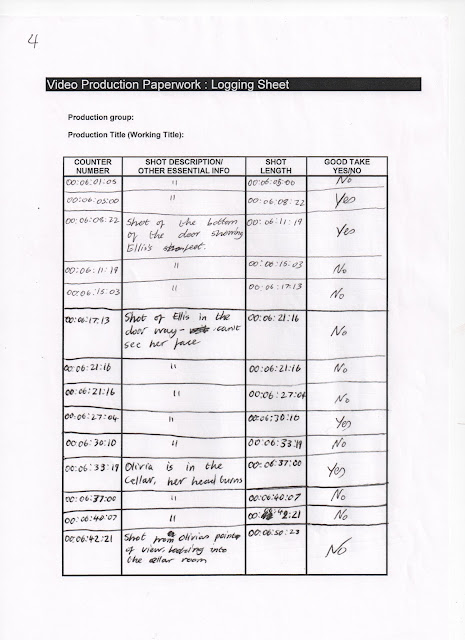 4
Video Production Paperwork : Logging Sheet
Production group:
Production Title (Working Title):
COUNTER NUMBER SHOT DESCRIPTION/ OTHER ESSENTIAL INFO SHOT LENGTH GOOD TAKE YES/NO
00:06:01:05 " 00:06:05:00 No
00:06:05:00 " 00:06:08:22 Yes
00:06:08:22 Shot of the bottom 00:06:11:19 Yes
of the door showing
Ellis's feet.
00:06:11:19 " 00:06:15:03 No
00:06:15:03 " 00:06:17:13 No
00:06:17:13 Shot of Ellis in the 00:06:21:16 No
door way - can't
see her face
00:06:21:16 " 00:06:21:16 No
00:06:21:16 " 00:06:27:04 No
00:06:27:04 " 00:06:30:10 Yes
00:06:30:10 " 00:06:33:19 No
00:06:33:19 Olivia is in the 00:06:37:00 Yes
Cellar, her head turns
00:06:37:00 " 00:06:40:07 No
00:06:40:07 " 00: 2:21 No
00:06:42:21 Shot from Olivias point 00:06:50:23 No
of view, looking into
the cellar room